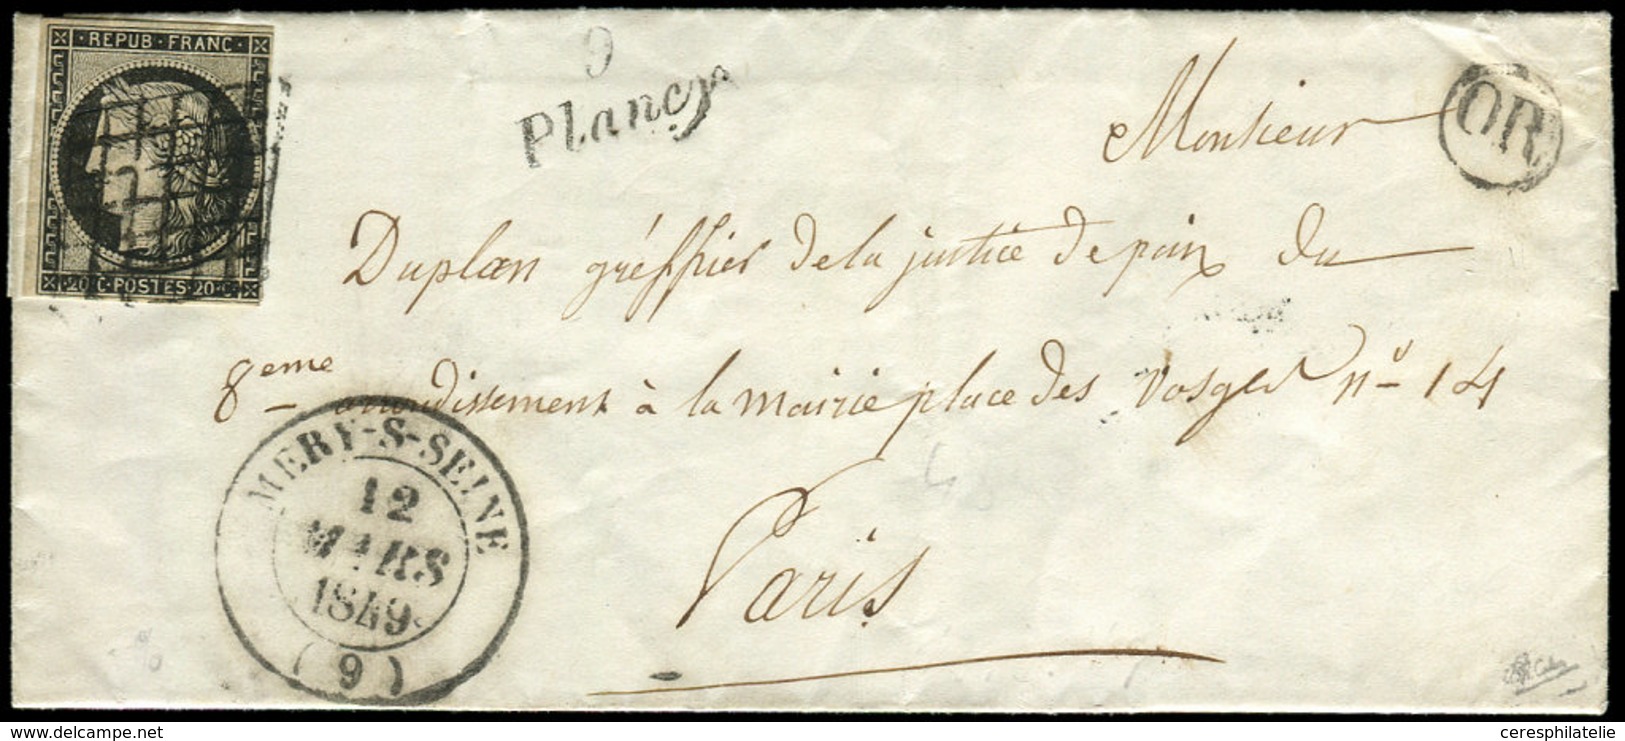 REPUB · FRANC ·
· 20 · C · POSTES · 20 · C ·
9
Plancy
OR
Monsieur
Duplan gréffier de la justice de paix du
8eme arrondissement à la mairie place des Vosges n° 14
Paris
MERY-S-SEINE
12
MARS
1849
(9)
ceresphilatelie
www.delcampe.net